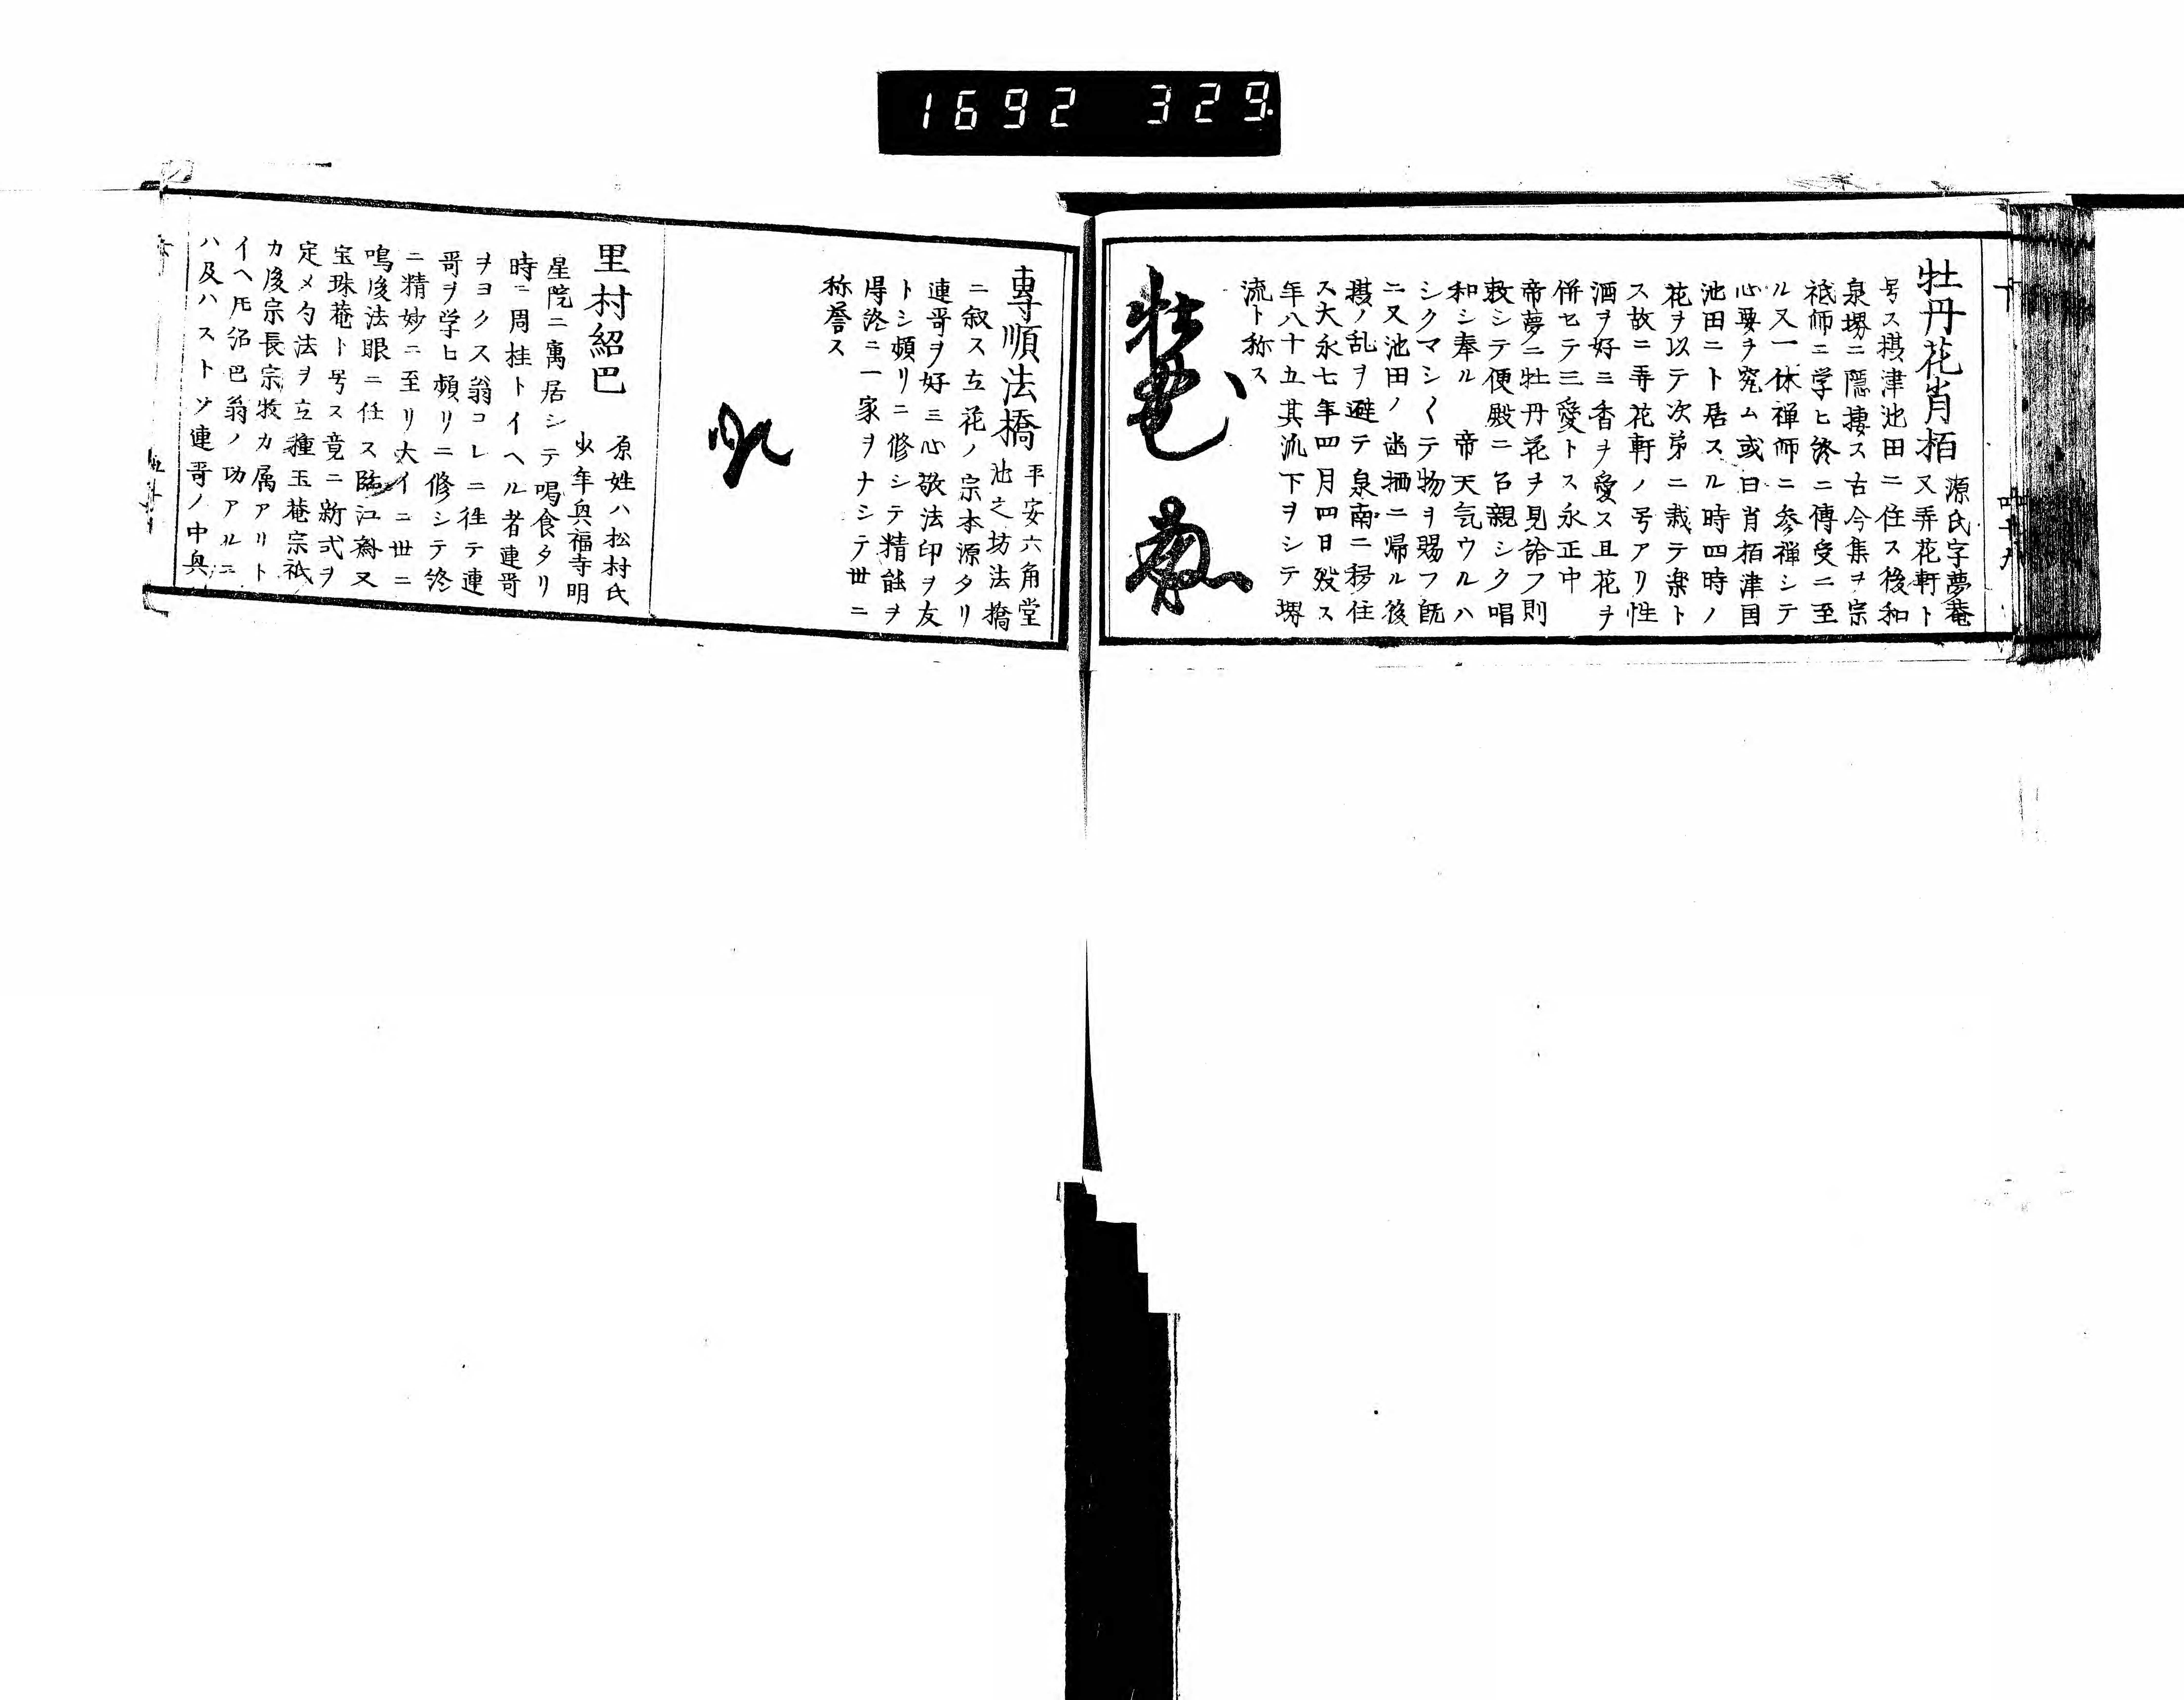 1692 329
牡丹花肖栢 源氏字夢菴
又弄花軒ト
号ス摂津池田ニ住ス後和
泉堺ニ隠捿ス古今集ヲ宗
祇師ニ学ヒ終ニ傳受ニ至
ル又一休禅師ニ参禅シテ
心要ヲ究ム或曰肖栢津国
池田ニト居スル時四時ノ
花ヲ以テ次第ニ栽テ楽ト
ス故ニ弄花軒ノ号アリ性
酒ヲ好ミ香ヲ愛ス且花ヲ
併セテ三愛トス永正中
帝夢ニ牡丹花ヲ見給フ則
敕シテ便殿ニ召親シク唱
和シ奉ル 帝天気ウルハ
シクマシ〱テ物ヲ賜フ既
ニ又池田ノ幽栖ニ帰ル後
摂ノ乱ヲ避テ泉南ニ移住
ス大永七年四月四日歿ス
年八十五其流下ヲシテ堺
流ト称ス
專順法橋 平安六角堂
池之坊法橋
ニ叙ス立花ノ宗本源タリ
連哥ヲ好ミ心敬法印ヲ友
トシ頻リニ修シテ精誼ヲ
得終ニ一家ヲナシテ世ニ
称誉ス
里村紹巴 原姓ハ松村氏
少年興福寺明
星院ニ寓居シテ喝食タリ
時ニ周桂トイヘル者連哥
ヲヨクス翁コレニ徃テ連
哥ヲ学ヒ頻リニ修シテ終
ニ精妙ニ至リ大イニ世ニ
鳴後法眼ニ任ス臨江齋又
宝珠菴ト号ス竟ニ新式ヲ
定メ勾法ヲ立種玉菴宗祇
カ後宗長宗牧カ属アリト
イヘ𪜈紹巴翁ノ功アルニ
ハ及ハストソ連哥ノ中興